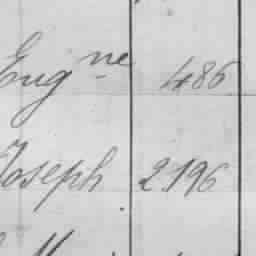 Eugne 486
Joseph 2196